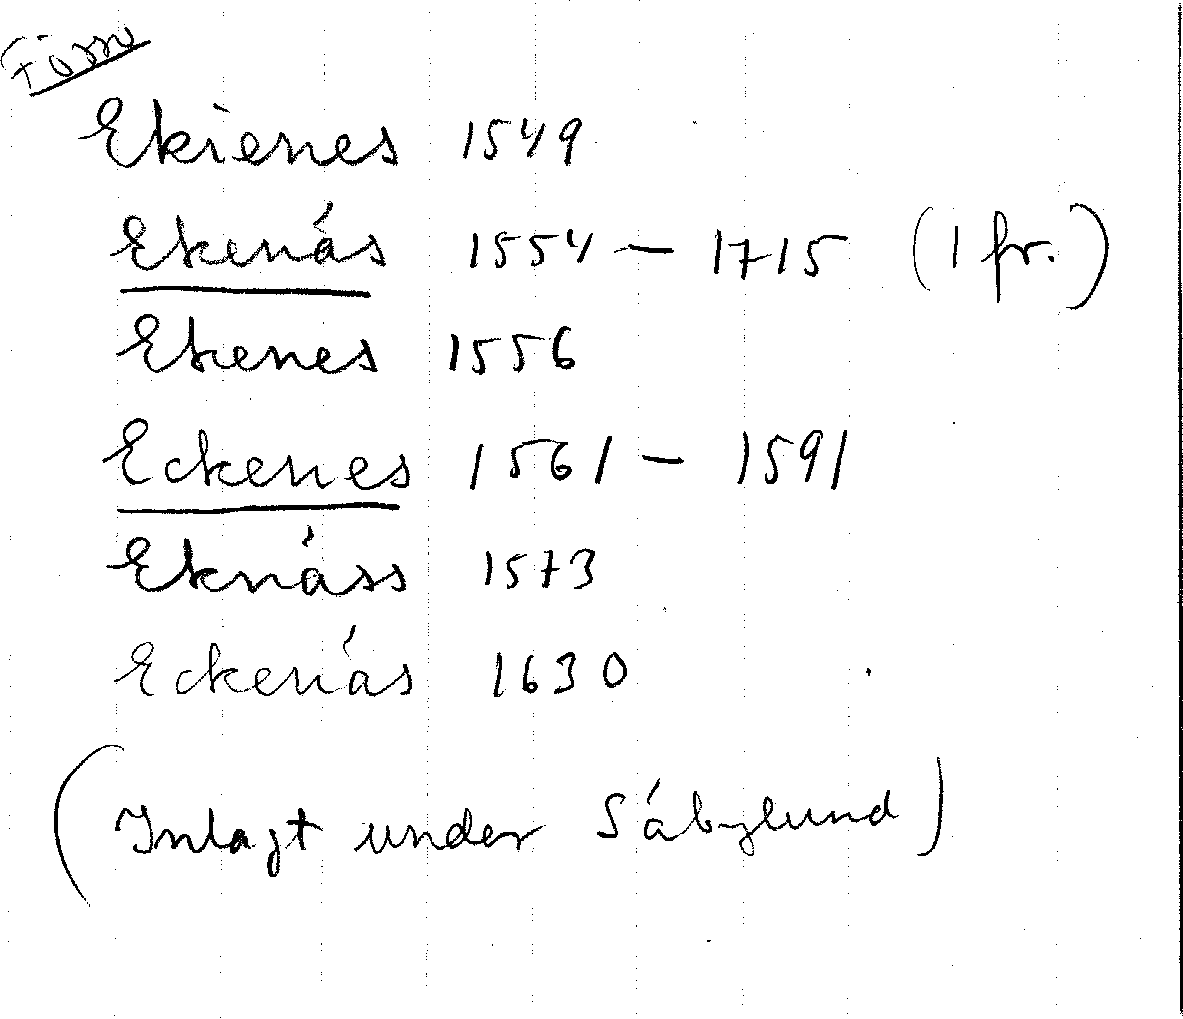 Förn
Ekienes 1549
Ekenás 1554 – 1715 (1 fr.)
Ekenes 1556
Eckenes 1561 – 1591
Eknáss 1573
Eckenás 1630
(Inlagt under Sábylund)